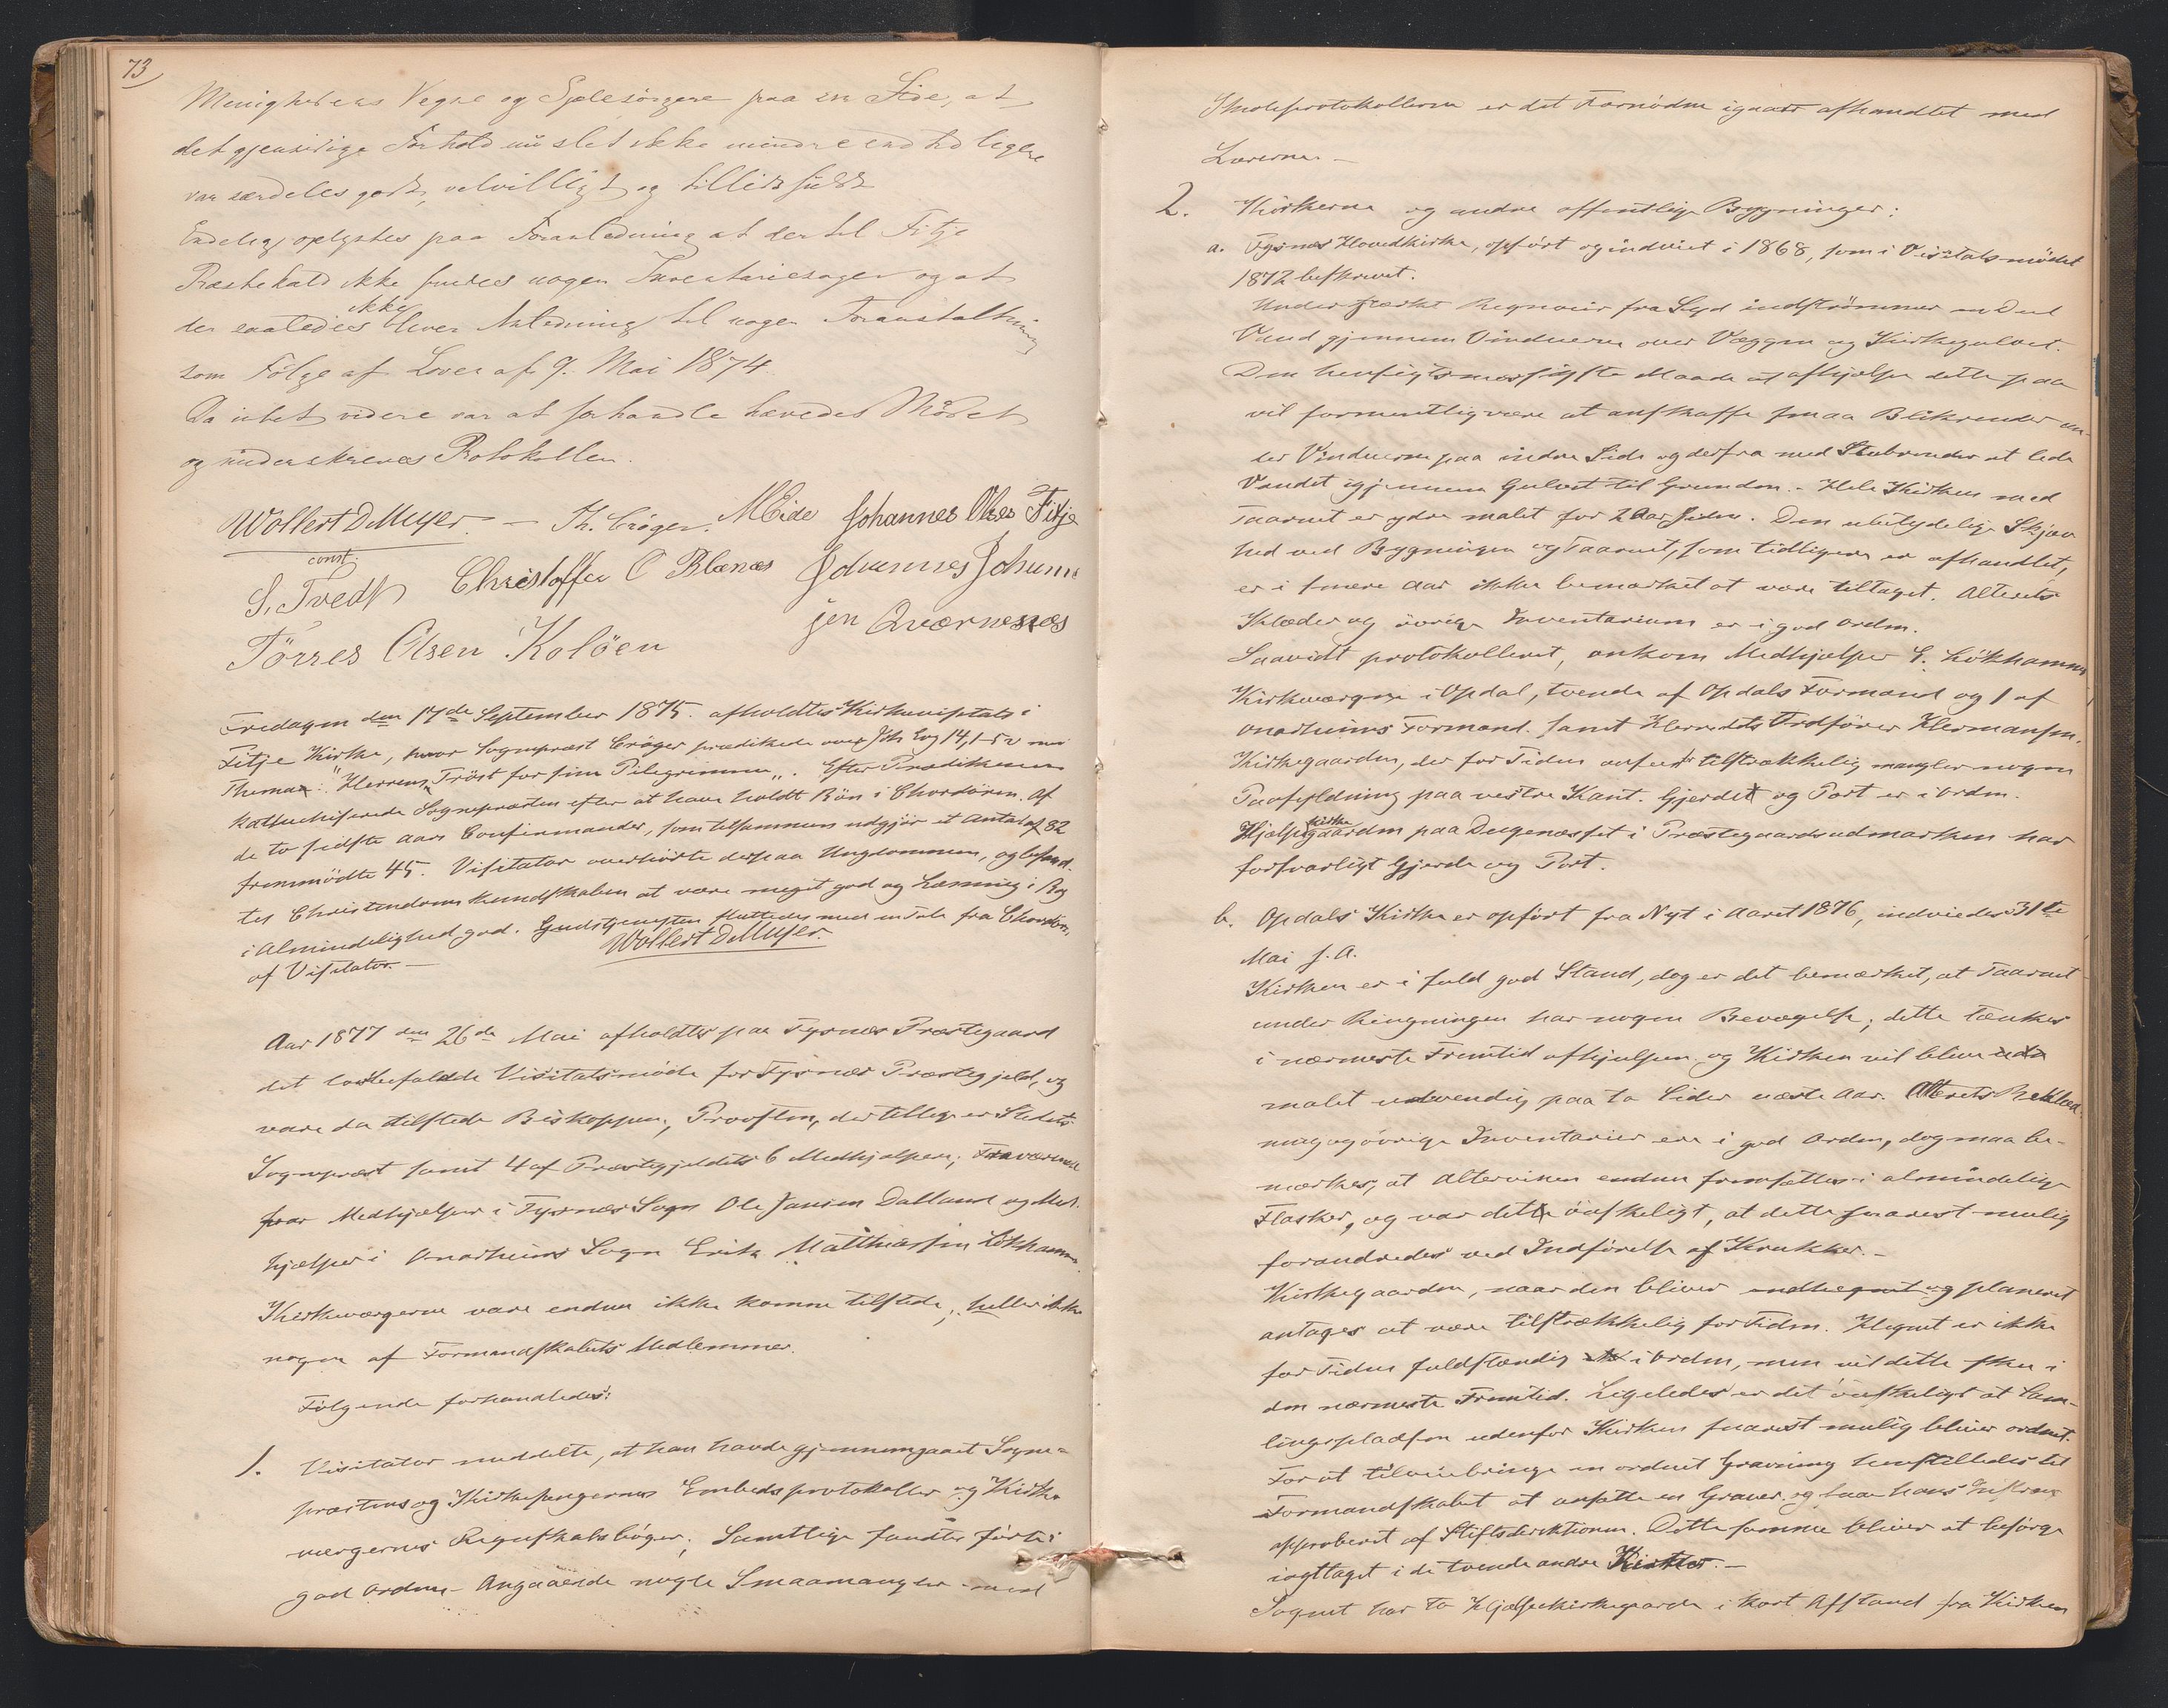 73
Menighedens Vegne og Sjælesørgere paa sin Side, at
det gjensidige Forhold nu slet ikke mindre end tidligere
var særdeles godt, velvilligt og tillidsfuldt
Endelig oplystes paa Foranledning at der til Fitje
Præstekald ikke findes nogen Inventariesager og at
der saaledes ikke bliver Anledning til nogen Foranstaltning
som Følge af Loven af 9. Mai 1874.
Da intet videre var at forhandle hævedes Mødet
og underskreves Protokollen.
Wollert D Meyer. – Th. Crøger. M Eide Johannes Olsen Fitje
const.
S. Tvedt Christoffer O Blænæs Johannes Johanne
sen Qværnesnæs
Törres Olsen Kolöen
Fredagen den 17de September 1875. afholdtes Kirkevisitats i
Fitje Kirke, hvor Sognepræst Crøger prædikede over Joh Ev 14,1-5 v med
Thema: "Herrens Trøst for sine Pilegrimme". Efter Prædikenen
katechiserede Sognepræsten efter at have holdt Bøn i Chordøren. Af
de to sidste Aars Confirmander, som tilsammen udgjør et Antal af 82
fremmødte 45. Visitator overhørte derpaa Ungdommen, og befand-
tes Christendoms Kundskaben at være meget god og Læsning i Bog
i Almindelighed god. Gudstjenesten sluttedes med en Tale fra Chordøren
af Visitator. –
Wollert D Meyer.
Aar 1877 den 26de Mai afholdtes paa Tysnes Præstegaard
det lovbefalede Visitatsmøde for Tysnes Præstegjeld, og
vare da tilstede Biskoppen, Provsten, der tillige er Stedets
Sognepræst samt 4 af Præstegjeldets 6 Medhjælpere; Fraværende
var Medhjælper i Tysnes Sogn Ole Jansen Dalland og Med-
hjælper i Onarheims Sogn Erik Matthiassen Løkhammer.
Kirkeværgerne vare endnu ikke komne tilstede, heller ikke
nogen af Formandskabets Medlemmer.
Følgende forhandledes:
1. Visitator meddelte, at han havde gjennemgaaet Sogne-
præstens og Kirkesangernes Embedsprotokoller og Kirke
værgernes Regnskabsbøger; Samtlige fandtes førte i
god Orden – Angaaende nogle Smaamangler ved
Skoleprotokollerne er det Fornødne igaar afhandlet med
Lærerne. –
2. Kirkerne og andre offentlige Bygninger:
a. Tysnes Hovedkirke, opført og indviet i 1868, som i Visitatsmødet
1872 beskrevet.
Under stærkt Regnveir fra Syd indstrømmer en Del
Vand gjennem Vinduerne over Væggen og Kirkegulvet.
Den hensigtsmæssigste Maade at afhjælpe dette paa
vil formentlig være at anskaffe smaa Blikrender un-
der Vinduerne paa indre Side og derfra med Støbrender at lede
Vandet igjennem Gulvet til Grunden. – Hele Kirken med
Taarnet er ydre malet for 2 Aar siden. Den ubetydelige Skjæv
hed ved Bygningen og Taarnet, som tidligere er afhandlet,
er i senere Aar ikke bemærket at være tiltaget. Alterets
Klæder og øvrige Inventarium er i god Orden.
Saavidt protokolleret, ankom Medhjælper E. Løkhammer
Kirkeværgerne i Opdal, tvende af Opdals Formænd og 1 af
Onarheims Formænd. samt Herredets Ordfører Hermansen.
Kirkegaarden, der for Tiden ansees tilstrækkelig mangler nogen
Paafyldning paa vestre Kant. Gjerdet og Port er i Orden.
Hjælpekirkegaarden paa Dugenæsset i Præstegaardsudmarken har
forsvarligt Gjerde og Port.
b. Opdals Kirke er opført fra Nyt i Aaret 1876, indviedes 31te
Mai s. A.
Kirken er i fuld god Stand, dog er det bemærket, at Taarnet
under Ringningen har nogen Bevægelse; dette tænkes
i nærmeste Fremtid afhjulpen og Kirken vil blive
malet udvendig paa to Sider næste Aar. Alterets Beklæd-
ning og øvrige Inventarier ere i god Orden, dog maa be-
mærkes, at Altervinen endnu fremsættes i almindelige
Flasker, og var det ønskeligt, at dette snarest mulig
forandredes ved Indførelse af Krukker. –
Kirkegaarden, naar den bliver indhegnet og planeret
antages at være tilstrækkelig for Tiden. Hegnet er ikke
for Tiden fuldstændig i Orden, men vil dette ske i
den nærmeste Fremtid. Ligeledes er det ønskeligt at Sam-
lingspladsen udenfor Kirken snarest mulig bliver ordnet.
For at tilveiebringe en ordnet Gravning henstilledes til
Formandskabet at ansætte en Graver og faa hans Instrux
approberet af Stiftsdirektionen. Dette samme bliver at besørge
iagttaget i de tvende andre Kirker. –
Sognet har to Hjælpekirkegaarde i kort Afstand fra Kirken